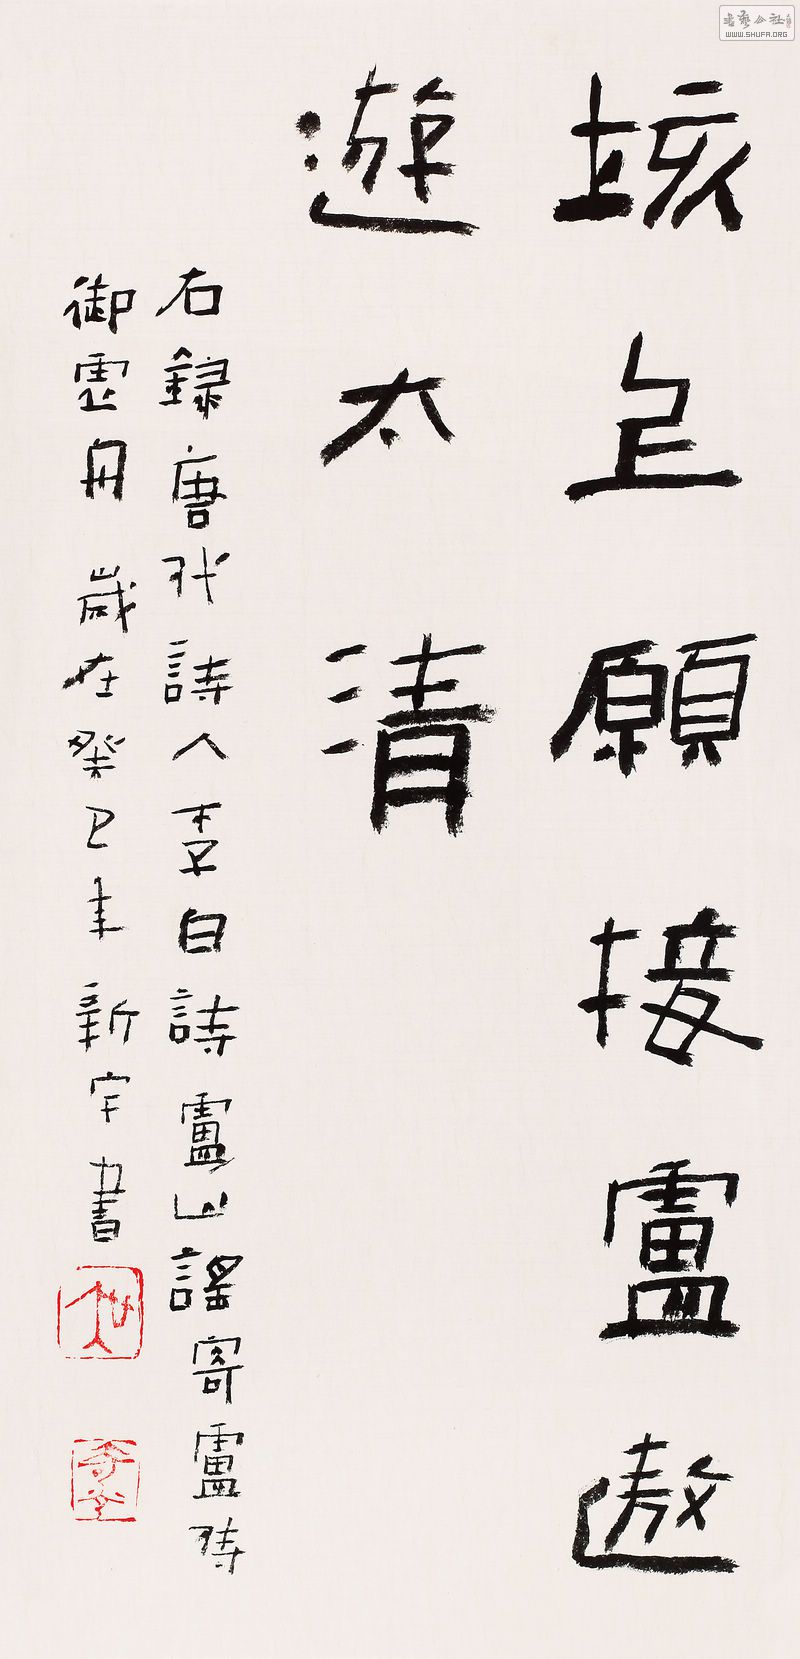 垓上願接盧遨
遊太清
右錄唐代詩人李白詩盧山謠寄盧侍
御虛舟 歲在癸巳年新宇書
书艺公社
WWW.SHUFA.ORG